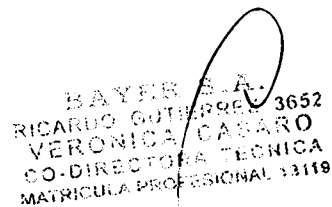 BAYER S.A.
RICARDO GUTIERREZ 3652
VERONICA CASARO
CO-DIRECTORA TECNICA
MATRICULA PROFESIONAL 13119